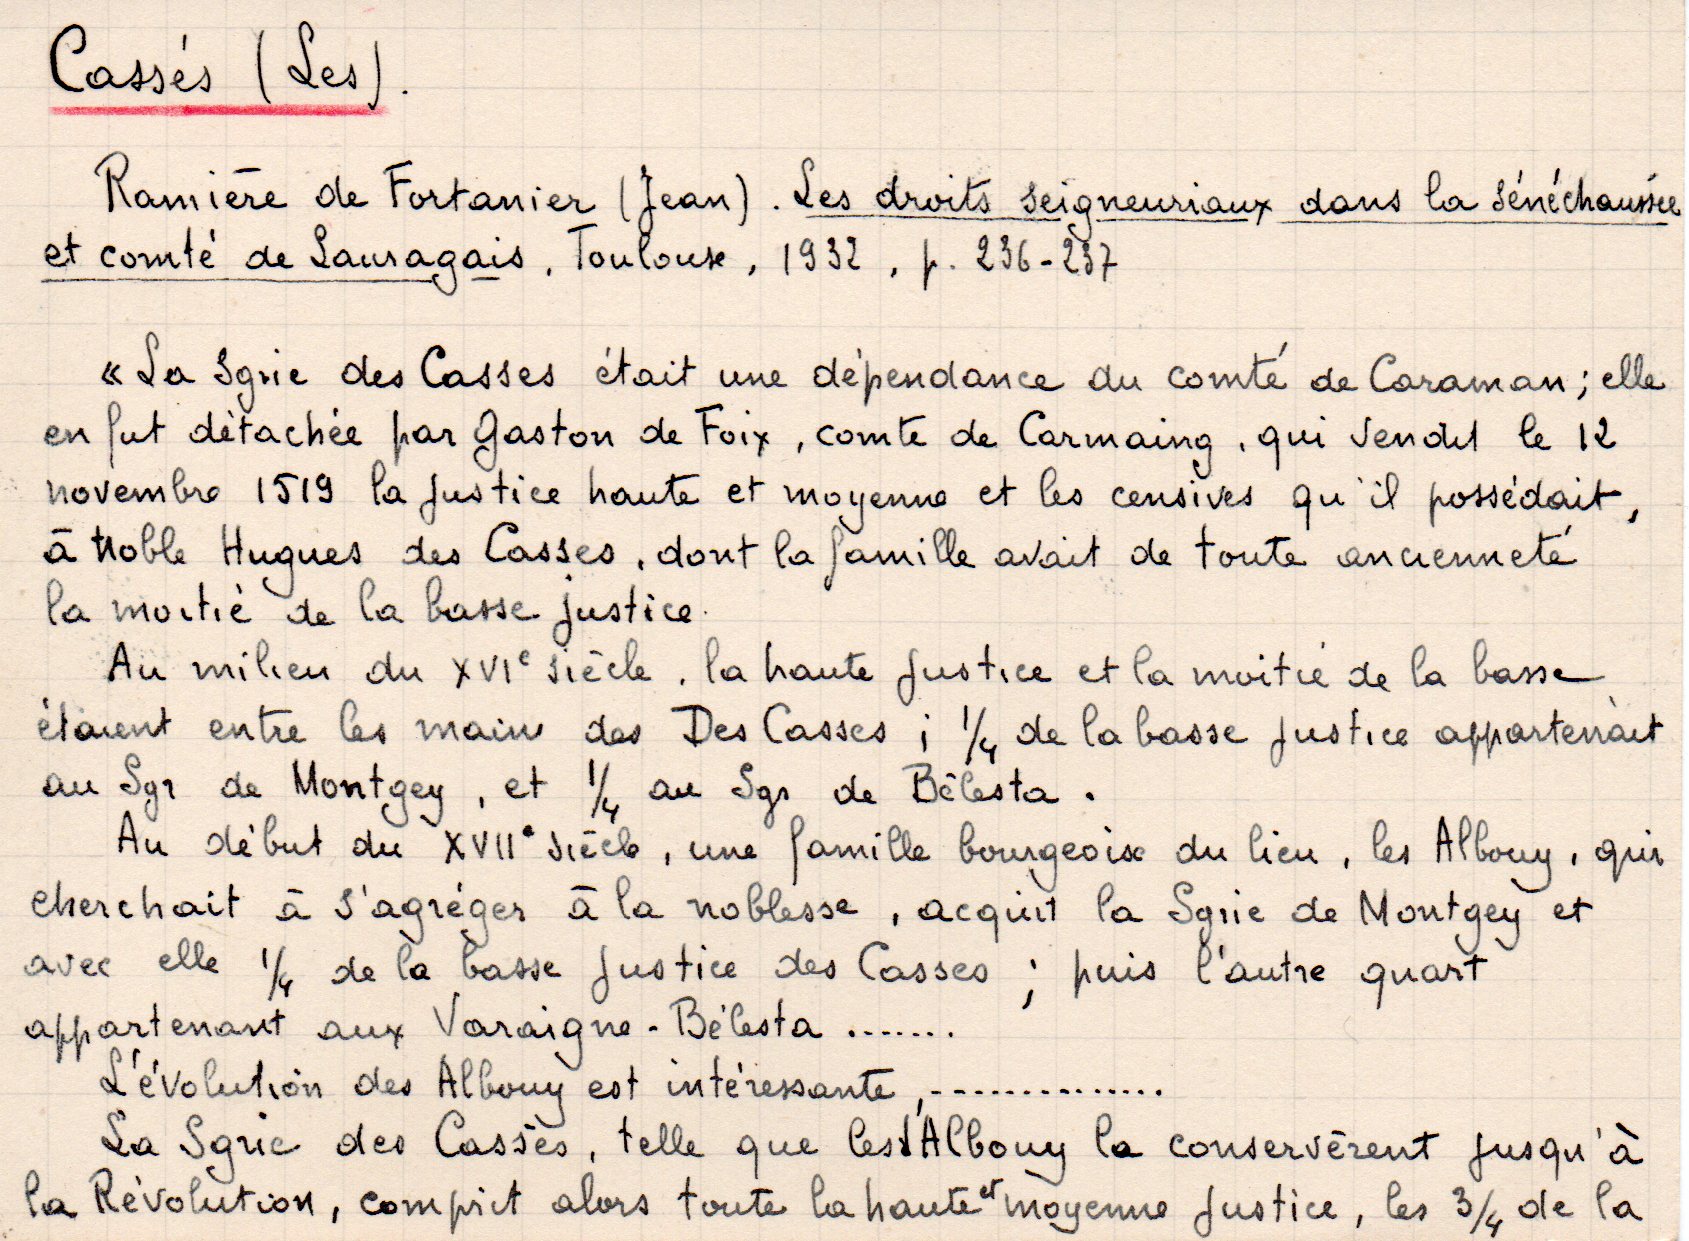 Cassés (Les).
Ramière de Fortanier (Jean). Les droits seigneuriaux dans la sénéchaussée
et comté de Lauragais, Toulouse, 1932, p. 236-237
« La Sgrie des Casses était une dépendance du comté de Caraman ; elle
en fut détachée par Gaston de Foix, comte de Carmaing, qui vendit le 12
novembre 1519 la justice haute et moyenne et les censives qu'il possédait,
à Noble Hugues des Casses, dont la famille avait de toute ancienneté
la moitié de la basse justice.
Au milieu du XVIe siècle, la haute justice et la moitié de la basse
étaient entre les mains des Des Casses ; 1/4 de la basse justice appartenait
au Sgr de Montgey, et 1/4 au Sgr de Bélesta.
Au début du XVIIe siècle, une famille bourgeoise du lieu, les Albouy, qui
cherchait à s'agréger à la noblesse, acquit la Sgrie de Montgey et
avec elle 1/4 de la basse justice des Casses ; puis l'autre quart
appartenant aux Varaigne-Bélesta .......
L'évolution des Albouy est intéressante, ..............
La Sgrie des Cassés, telle que les d'Albouy la conservèrent jusqu'à
la Révolution, comprit alors toute la haute et moyenne justice, les 3/4 de la